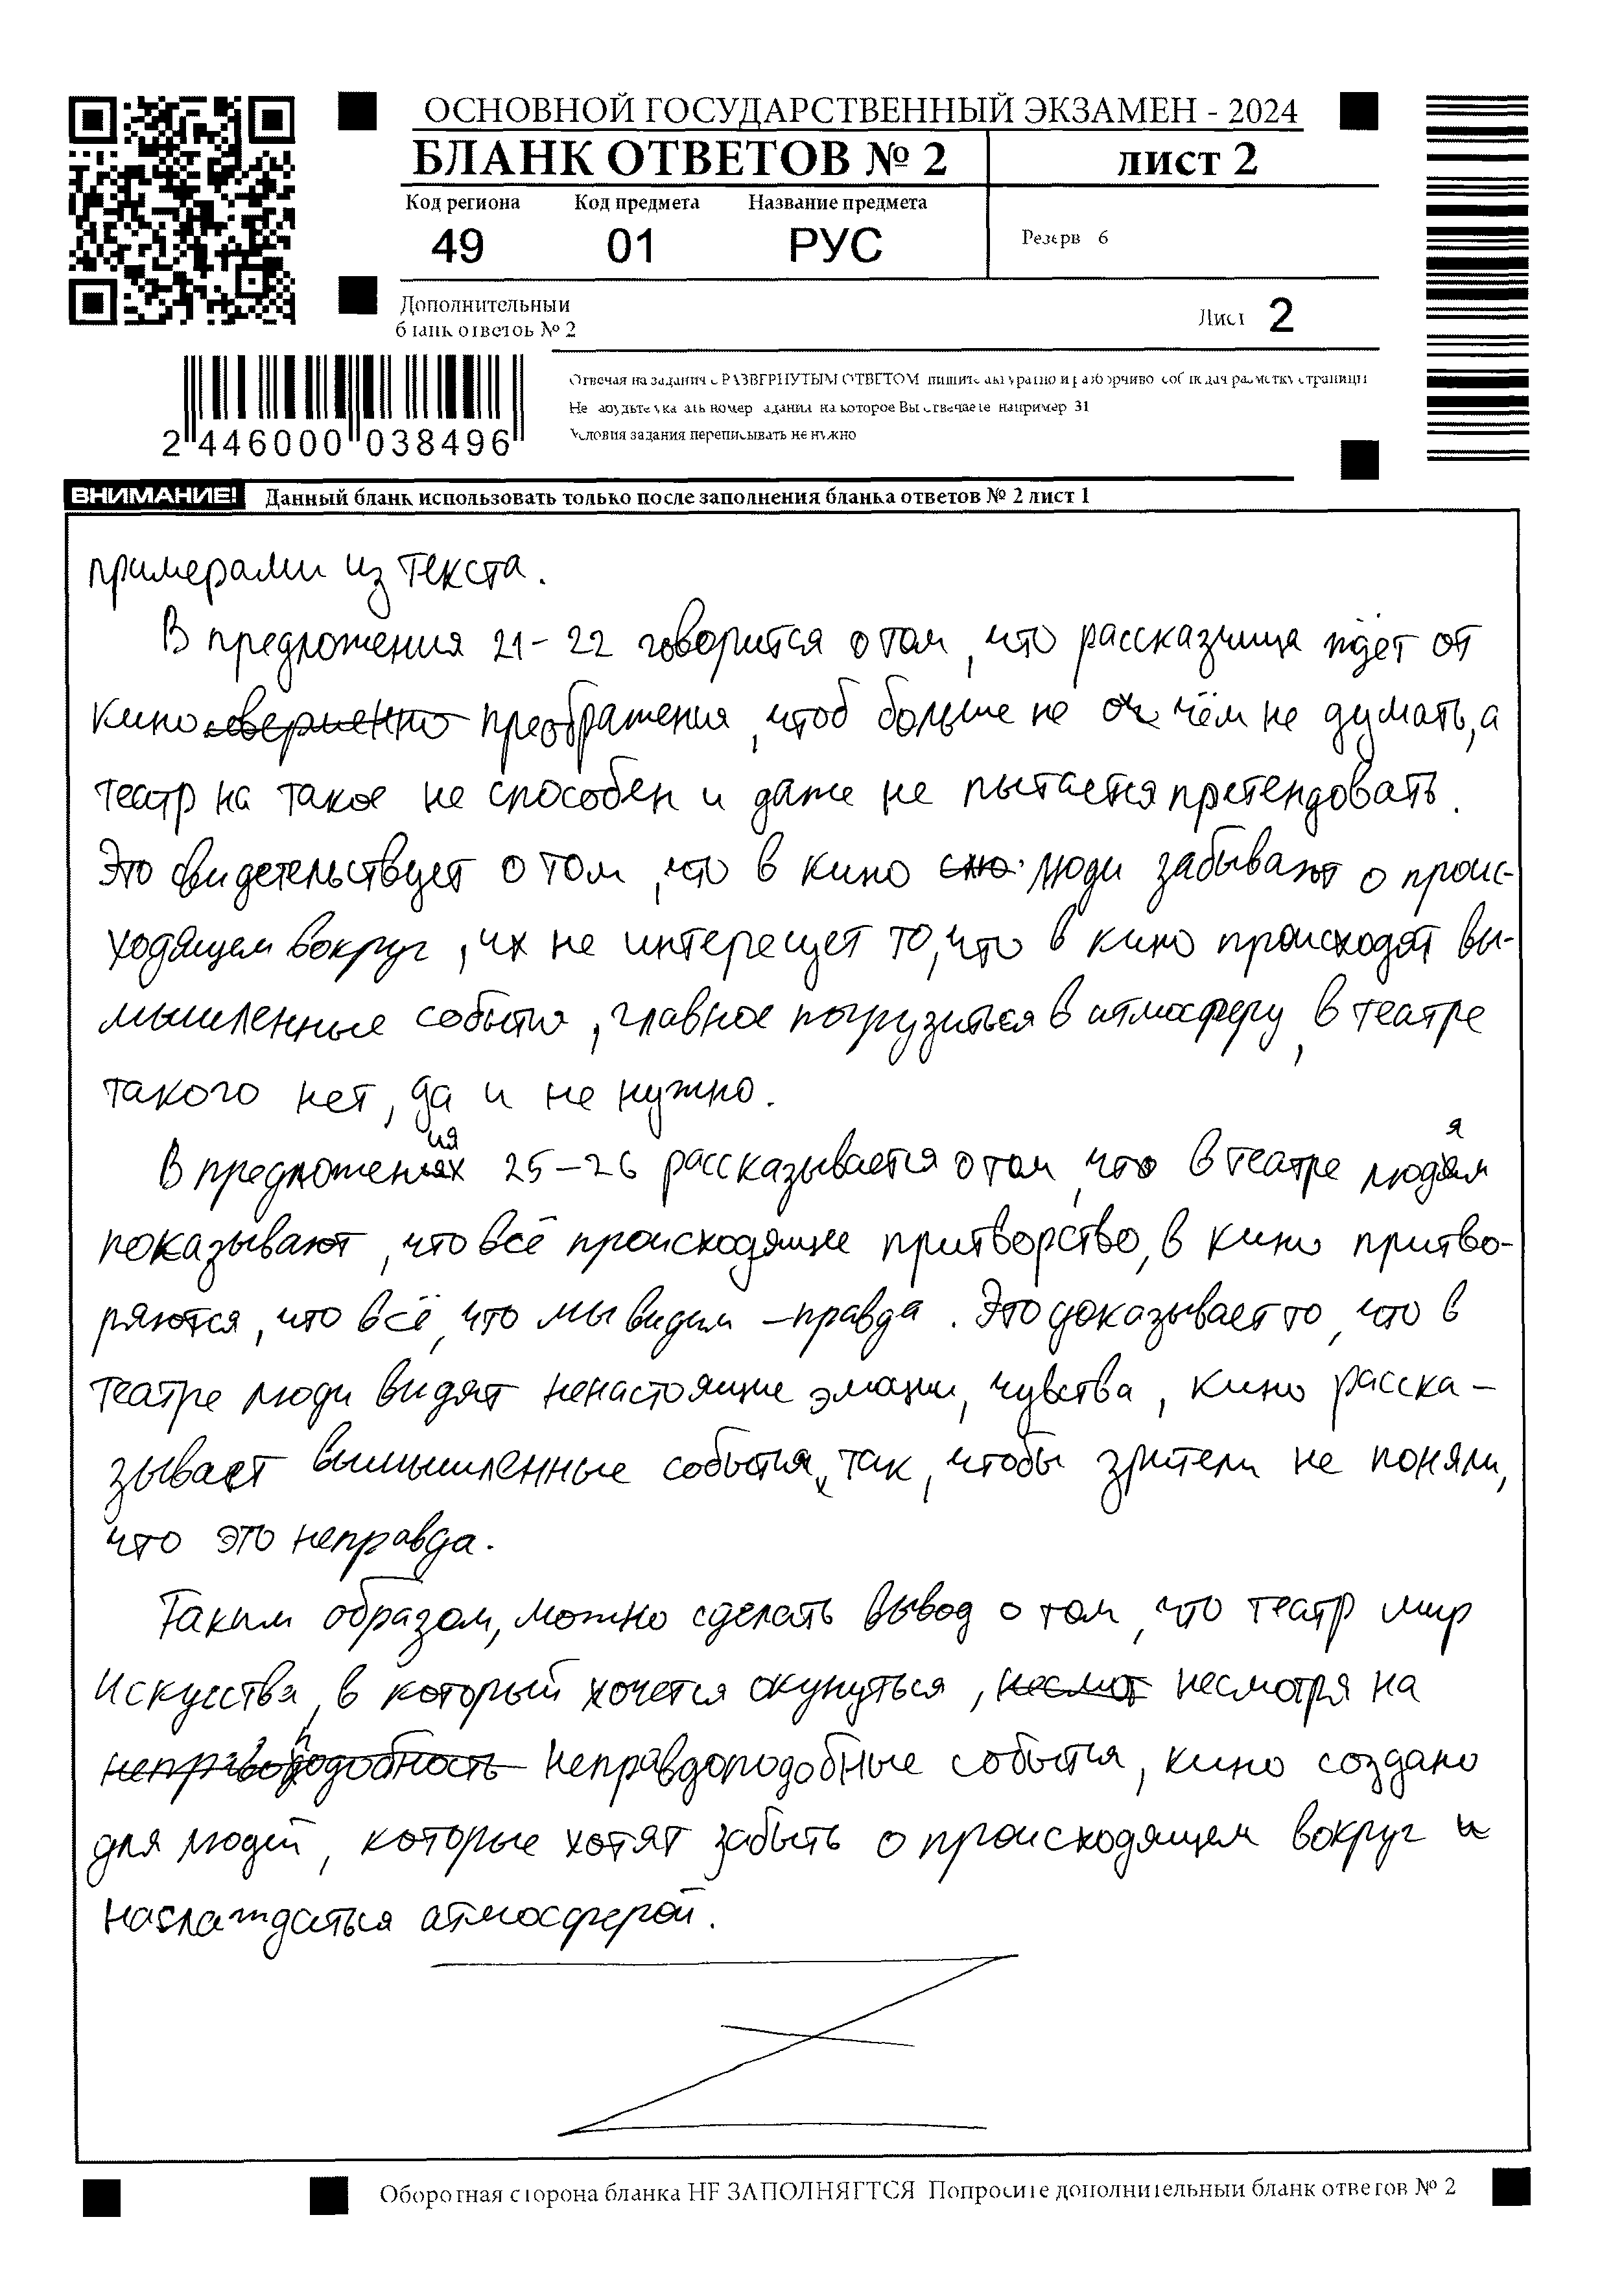 ОСНОВНОЙ ГОСУДАРСТВЕННЫЙ ЭКЗАМЕН - 2024
БЛАНК ОТВЕТОВ № 2 лист 2
Код региона Код предмета Название предмета
49 01 РУС Резерв 6
Дополнительный
бланк ответов № 2 Лист 2
Отвечая на задания с РАЗВЕРНУТЫМ ОТВЕТОМ пишите аккуратно и разборчиво соблюдая разметку страницы
Не забудьте указать номер задания на которое Вы отвечаете например 31
Условия задания переписывать не нужно
2 446000 038496
ВНИМАНИЕ! Данный бланк использовать только после заполнения бланка ответов № 2 лист 1
примерами из текста.
В предложения 21-22 говорится о том, что рассказчица ждёт от
кино совершенно преображения, чтоб больше не о чём не думать, а
театр на такое не способен и даже не пытается претендовать.
Это свидетельствует о том, что в кино люди забывают о проис-
ходящем вокруг, их не интересует то, что в кино происходят вы-
мышленные события, главное погрузиться в атмосферу, в театре
такого нет, да и не нужно.
В предложения 25-26 рассказывается о том, что в театре людям
показывают, что всё происходящее притворство, в кино притво-
ряются, что всё, что мы видим - правда. Это доказывает то, что в
театре люди видят ненастоящие эмоции, чувства, кино расска-
зывает вымышленные события, так, чтобы зрители не поняли,
что это неправда.
Таким образом, можно сделать вывод о том, что театр мир
искусства, в который хочется окунуться, несмот несмотря на
неправдоподобность неправдоподобные события, кино создано
для людей, которые хотят забыть о происходящем вокруг и
наслаждаться атмосферой.
Оборотная сторона бланка НЕ ЗАПОЛНЯЕТСЯ Попросите дополнительный бланк ответов № 2